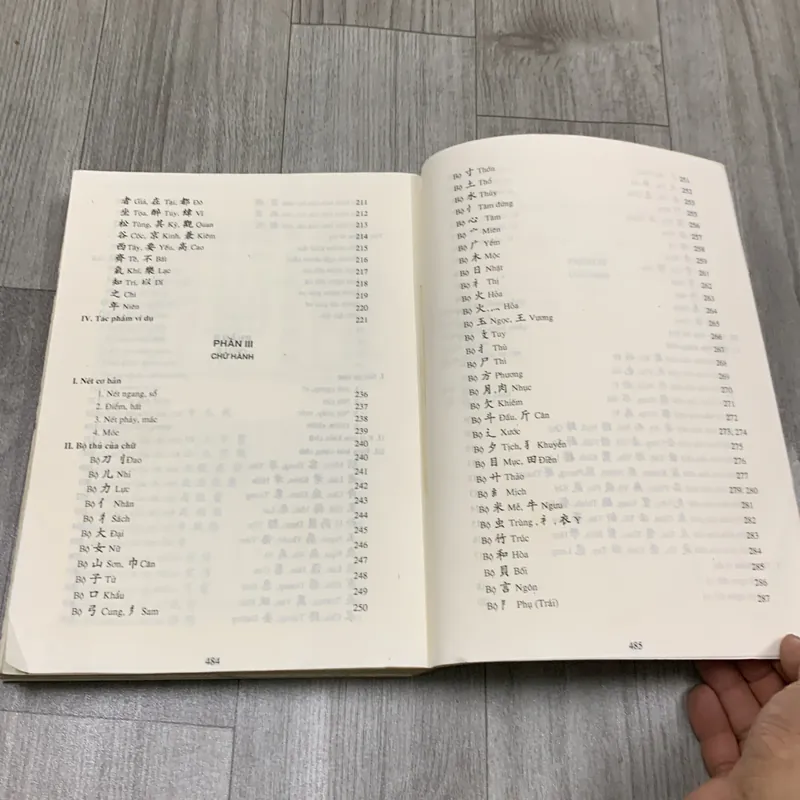 者 Giả, 在 Tại, 都 Đô 211
坐 Tọa, 醉 Túy, 緯 Vĩ 212
松 Tùng, 其 Kỳ, 觀 Quan 213
谷 Cốc, 京 Kinh, 兼 Kiêm 214
西 Tây, 要 Yếu, 高 Cao 215
齊 Tề, 不 Bất 216
氣 Khí, 樂 Lạc 217
知 Tri, 以 Dĩ 218
之 Chi 219
年 Niên 220
IV. Tác phẩm ví dụ 221
PHẦN III
CHỮ HÀNH
I. Nét cơ bản
1. Nét ngang, sổ 236
2. Điểm, hất 237
3. Nét phảy, mác 238
4. Móc 239
II. Bộ thủ của chữ 240
Bộ 刀 刂 Đao 240
Bộ 儿 Nhi 241
Bộ 力 Lực 242
Bộ 亻 Nhân 243
Bộ Sách 244
Bộ 大 Đại 245
Bộ 女 Nữ 246
Bộ 山 Sơn, 巾 Cân 247
Bộ 子 Tử 248
Bộ 口 Khẩu 249
Bộ 弓 Cung, 彡 Sam 250
484
Bộ 寸 Thốn 251
Bộ 土 Thổ 252
Bộ 水 Thủy 253
Bộ 忄 Tâm đứng
Bộ 心 Tâm
Bộ 宀 Miên
Bộ 广 Yểm 258
Bộ 木 Mộc
Bộ 日 Nhật
Bộ 礻 Thị 261
Bộ 火 Hỏa 262
Bộ 火, 灬 Hỏa 263
Bộ 玉 Ngọc, 王 Vương
Bộ Tuy 265
Bộ 扌 Thủ 267
Bộ 尸 Thi 268
Bộ 方 Phương 269
Bộ 月, 肉 Nhục 270
Bộ 欠 Khiếm 271
Bộ 斗 Đẩu, 斤 Cân 272
Bộ 辶 Xước 273, 274
Bộ 夕 Tịch, 犭 Khuyển 275
Bộ 目 Mục, 田 Điền 276
Bộ 艹 Thảo 277
Bộ 糹 Mịch 279, 280
Bộ 米 Mễ, 牛 Ngưu 281
Bộ 虫 Trùng, 衤, 衣 Y 282
Bộ 竹 Trúc 283
Bộ 和 Hòa 284
Bộ 貝 Bối 285
Bộ 言 Ngôn 286
Bộ 阝 Phụ (Trái) 287
485